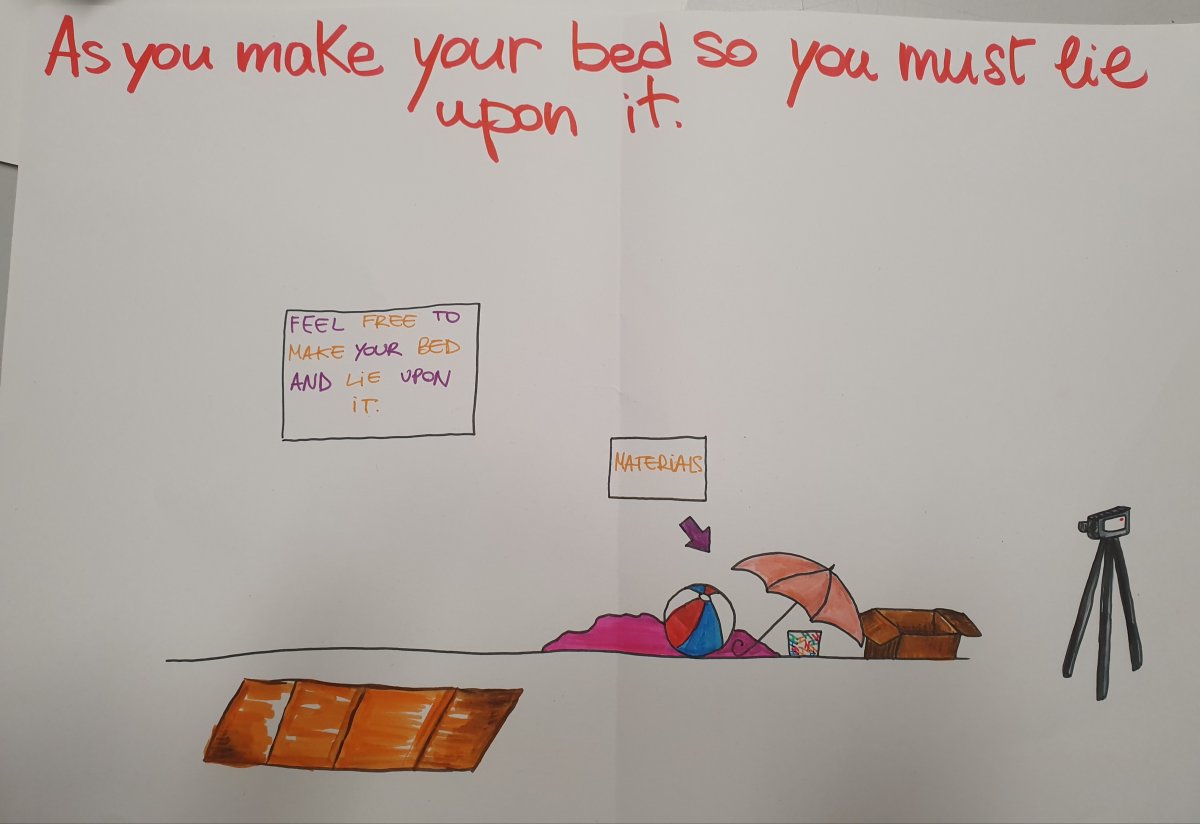 As you make your bed so you must lie
upon it.
FEEL FREE TO
MAKE YOUR BED
AND LiE UPON
iT.
MATERiALS